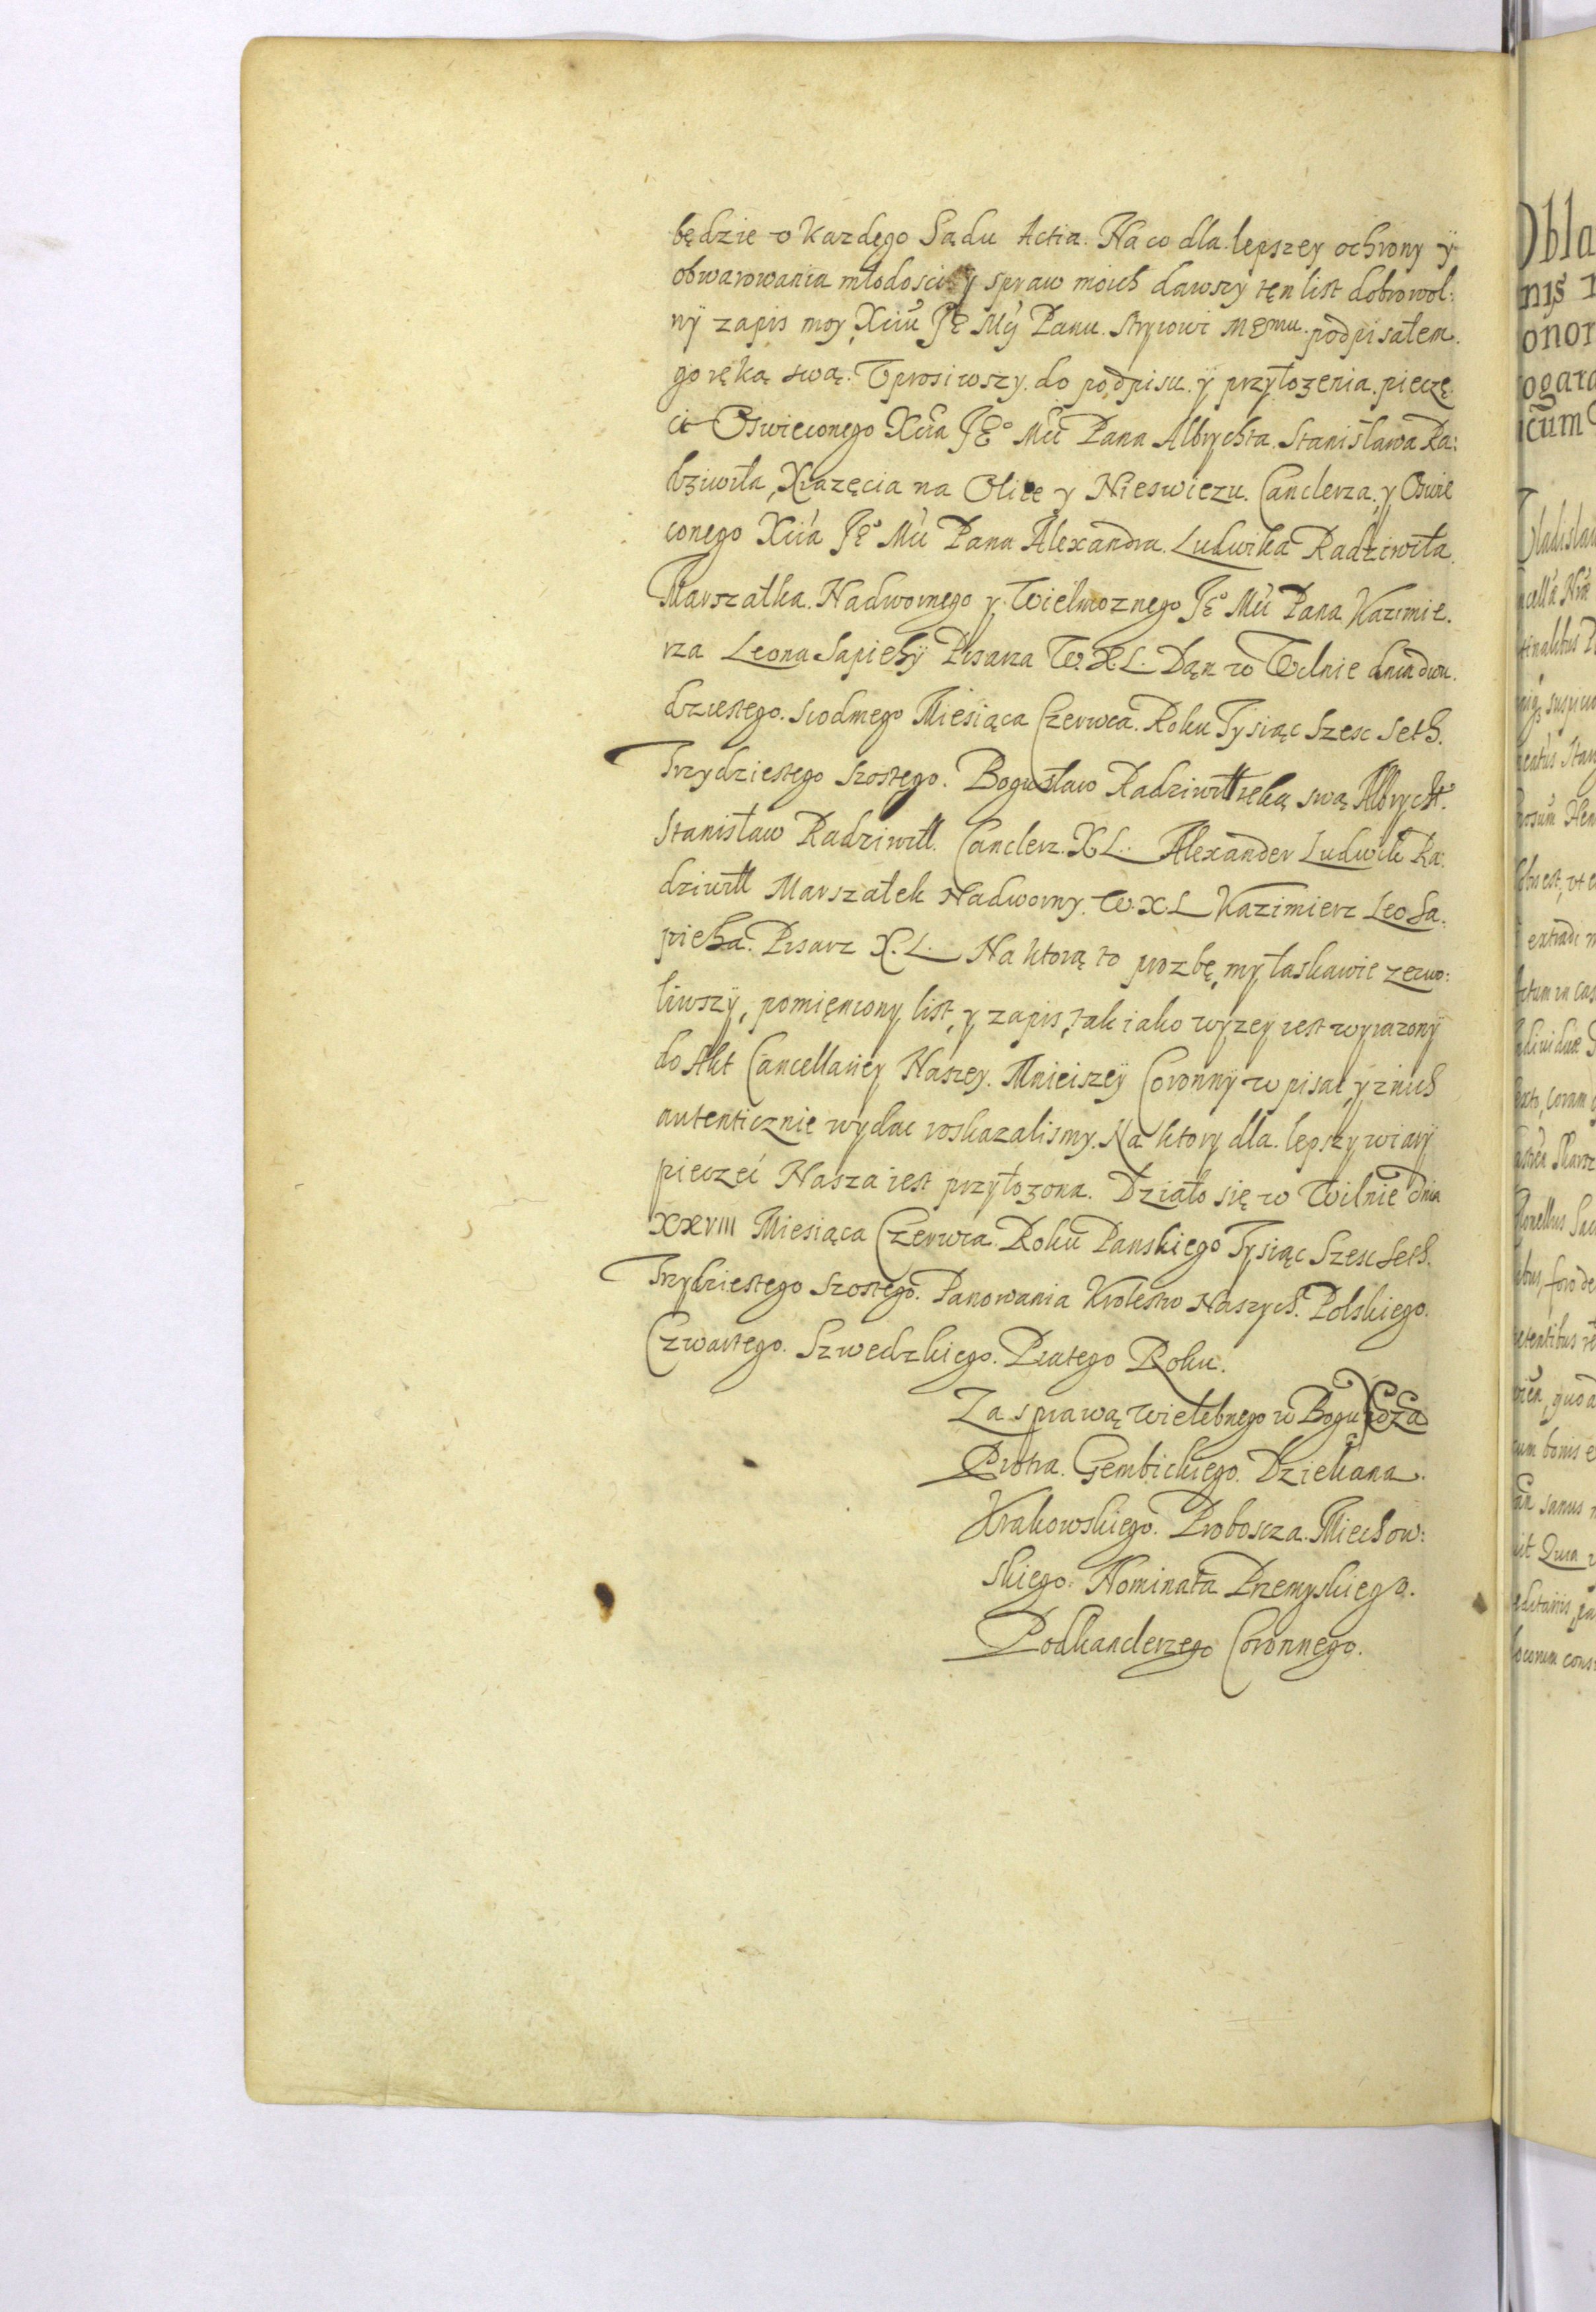 będzie v kazdego Sądu Actia. Na co dla lepszey ochrony ÿ
obwarowania młodosci y spraw moich dawszy ten list dobrowol:
nÿ zapis moy, Xciu Je° Mći Panu Stryiowi memu podpisałem
go ręką swą. Uprosiwszy do podpisu ÿ przyłozenia pieczę
ci Oswieconego Xcia JE° Mći Pana Albrychta Stanisława Ra:
dziwiła, Xiazęcia na Olice y Nieswiezu Canclerza, y Oswie
conego Xcia Je° Mći Pana Alexandra Ludwika Radziwiła
Marszałka Nadwornego y Wielmoznego Je° Mći Pana Kazimie.
rza Leona Sapiehÿ Pisarza W. X. L. Dan w Wilnie dnia dwu.
dziestego siodmego Miesiąca Czerwca. Roku Tysiąc Szesc Seth.
Trzydziestego szostego. Bogusław Radziwiłł ręką swą Albrycht
Stanisław Radziwiłł. Canclerz. X L. Alexander Ludwik Ra:
dziwiłł Marszałek Nadworny. W. X L Kazimierz Leo Sa.
pieha. Pisarz X. L. Na ktorą to prozbę, my łaskawie zezwo:
liwszÿ, pomięniony list, y zapis, tak iako wyzey iest wyrazonÿ
do Akt Cancellariey Naszey. Mnieiszeÿ Coronnÿ w pisać, y z nich
autenticznie wydac roskazalismy. Na ktory dla lepszy wiarÿ
pieczeć Nasza iest przyłozona. Działo się w Wilnie dnia
XXVIII Miesiąca Czerwca. Roku Panskiego Tysiąc Szesc Seth.
Trzydziestego szostego. Panowania Krolestw Naszych. Polskiego.
Czwartego. Szwedzkiego. Piatego Roku.
Za sprawą Wielebnego w Bogu Xdza
Piotra. Gembickiego. Dziekana.
Krakowskiego. Proboscza. Miechow:
skiego. Nominata Przemyskiego.
Podkanclerzego Coronnego.